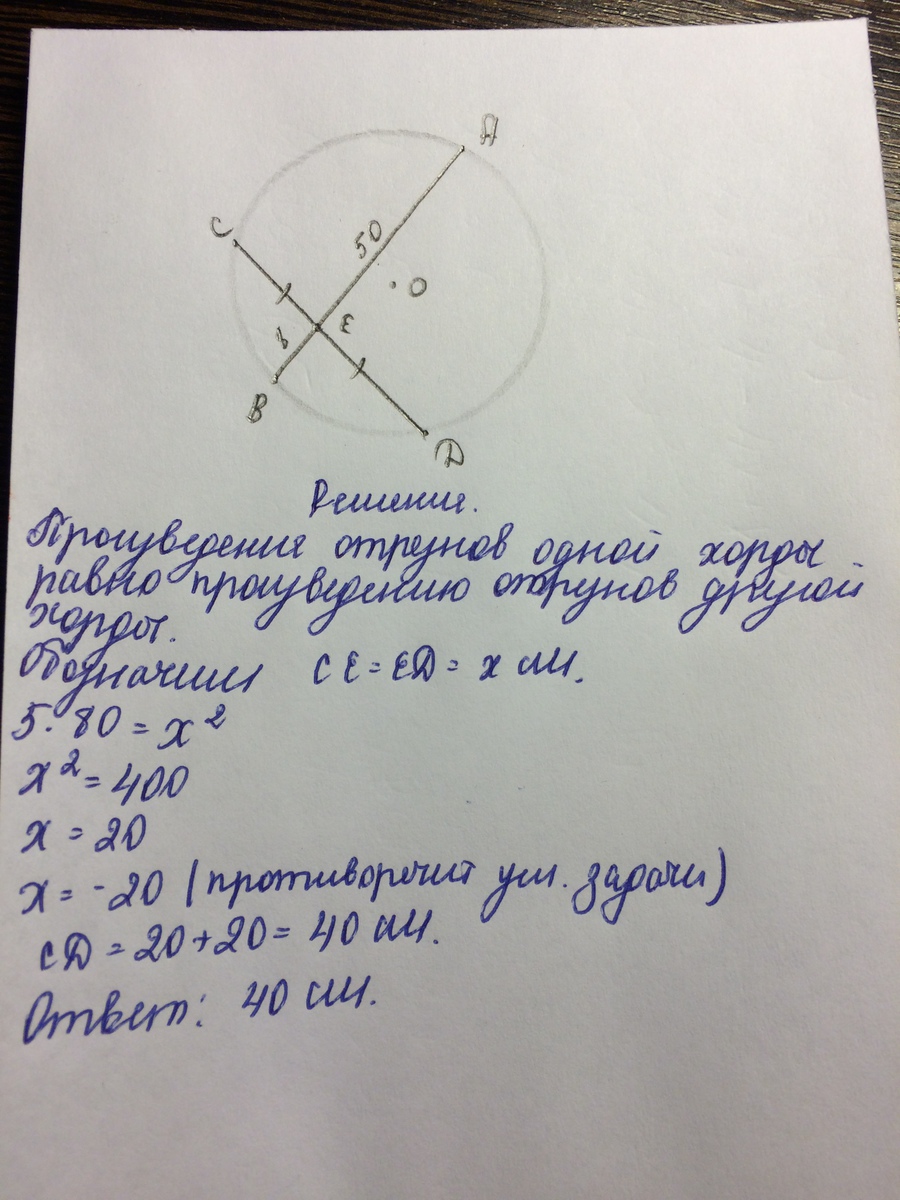 A
C
50
O
8
E
B
D
Решение.
Произведения отрезков одной хорды
равно произведению отрезков другой
хорды.
Обозначим CE = ED = x см.
5 · 80 = x²
x² = 400
x = 20
x = -20 (противоречит усл. задачи)
CD = 20 + 20 = 40 см.
Ответ: 40 см.